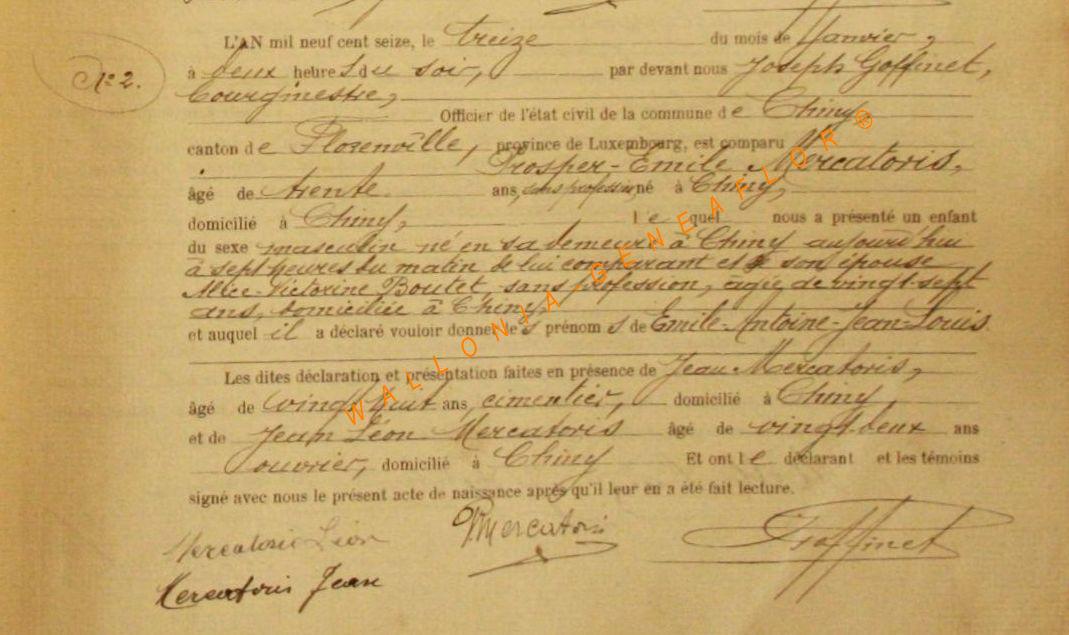 N° 2.
L'AN mil neuf cent seize, le treize du mois de Janvier,
à deux heures du soir, par devant nous Joseph Goffinet,
bourgmestre,
Officier de l'état civil de la commune de Chiny
canton de Florenville, province de Luxembourg, est comparu
Prosper-Emile Mercatoris,
âgé de trente ans, sans profession, né à Chiny,
domicilié à Chiny, lequel nous a présenté un enfant
du sexe masculin né en sa demeure à Chiny aujourd'hui
à sept heures du matin de lui comparant et de son épouse
Alice-Victorine Boulet, sans profession, âgée de vingt-sept
ans, domiciliée à Chiny,
et auquel il a déclaré vouloir donner les prénoms de Emile-Antoine-Jean-Louis
Les dites déclaration et présentation faites en présence de Jean Mercatoris,
âgé de vingt huit ans, cimentier, domicilié à Chiny,
et de Jean Léon Mercatoris âgé de vingt-deux ans
ouvrier, domicilié à Chiny Et ont le déclarant et les témoins
signé avec nous le présent acte de naissance après qu'il leur en a été fait lecture.
Mercatoris Léon
PMercatoris
Goffinet
Mercatoris Jean
WALLONIA-GENEAFLOR®